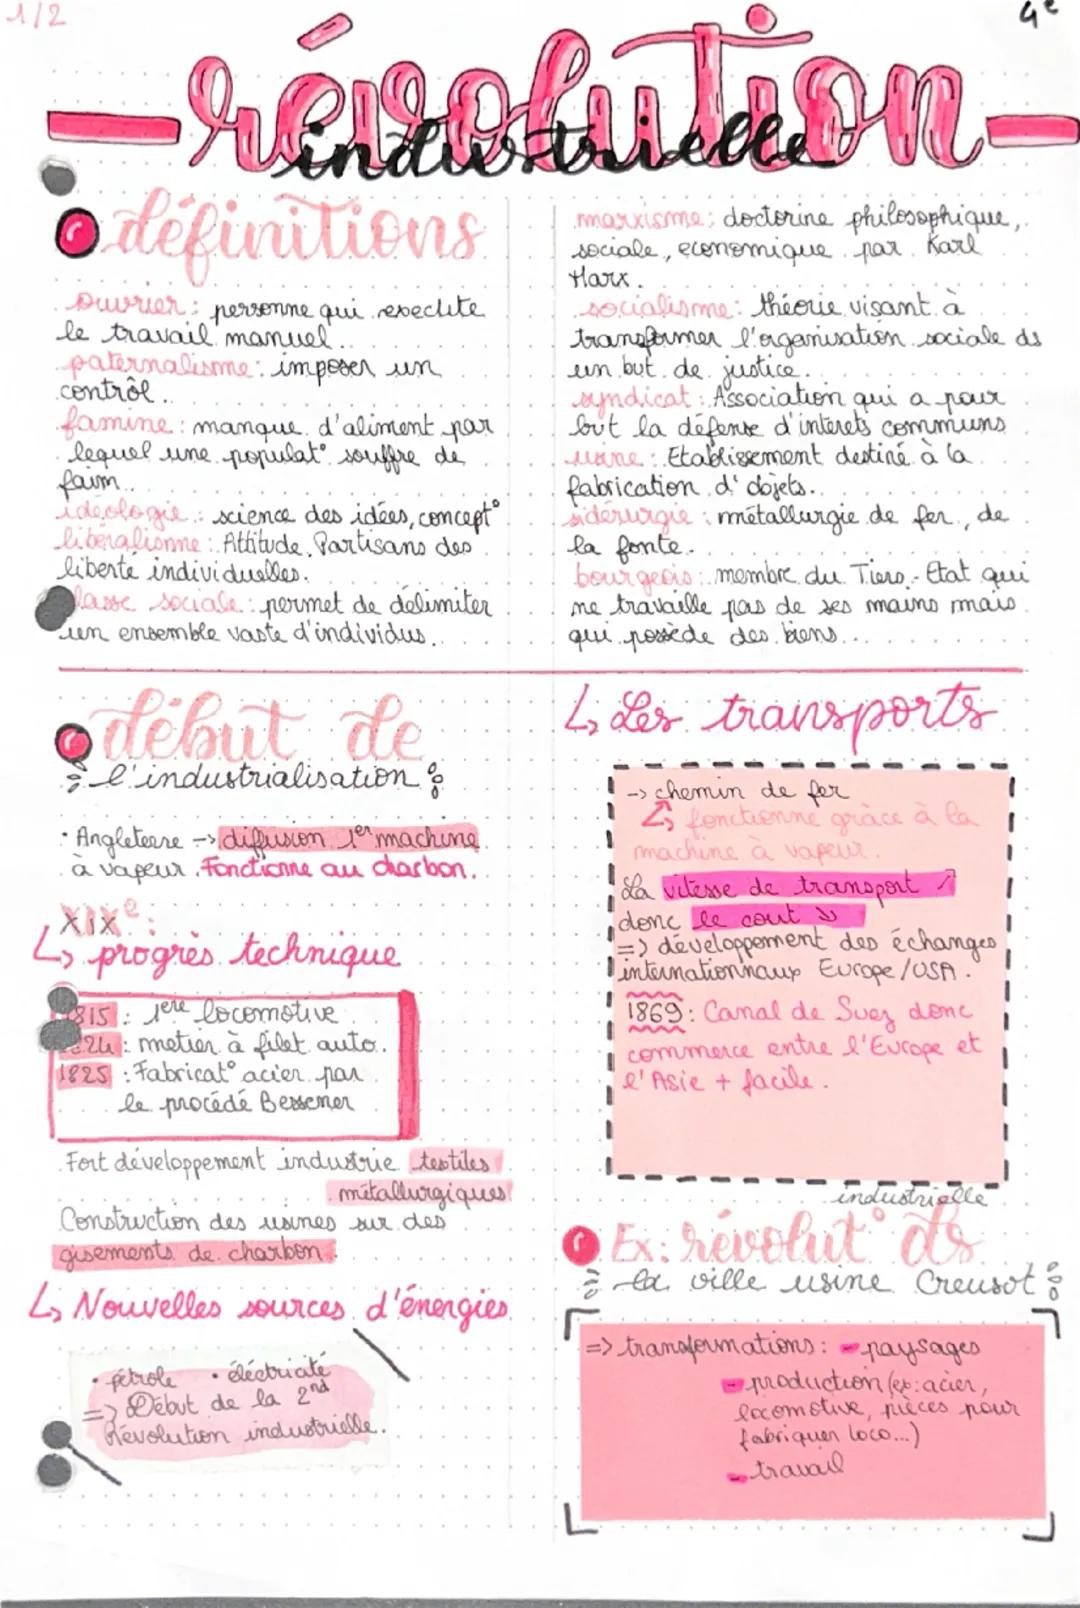 1/2
4e
révolution
industrielle
définitions
ouvrier : personne qui execute
le travail manuel.
paternalisme : imposer un
contrôl.
famine : manque d'aliment par
lequel une populat° souffre de
faim.
idéologie : science des idées, concept°
libéralisme : Attitude, Partisans des
liberté individuelles.
lasse sociale : permet de délimiter
un ensemble vaste d'individus.
marxisme : doctorine philosophique,
sociale, economique par Karl
Marx.
socialisme : théorie visant à
transformer l'organisation sociale ds
un but de justice.
syndicat : Association qui a pour
but la défense d'interets communs
usine : Etablissement destiné à la
fabrication d'objets.
sidérurgie : métallurgie de fer, de
la fonte.
bourgeois : membre du Tiers-Etat qui
ne travaille pas de ses mains mais
qui possède des biens.
début de
l'industrialisation
• Angleterre -> diffusion 1er machine
à vapeur. Fonctionne au charbon.
XIXe :
↳ progrès technique
815 : 1ere locomotive
24 : metier à filet auto.
1825 : Fabricat° acier par
le procédé Bessemer
Fort développement industrie textiles
métallurgiques
Construction des usines sur des
gisements de charbon.
↳ Nouvelles sources d'énergies
• pétrole • électricité
=> Début de la 2nd
Révolution industrielle.
↳ Les transports
-> chemin de fer
↳ fonctionne grâce à la
machine à vapeur.
La vitesse de transport ↗
donc le cout ↘
=> développement des échanges
internationnaux Europe/USA.
1869 : Canal de Suez donc
commerce entre l'Europe et
l'Asie + facile.
industrielle
Ex : révolut° ds
la ville usine Creusot
=> transformations : - paysages
- production (ex : acier,
locomotive, pièces pour
fabriquer loco...)
- travail